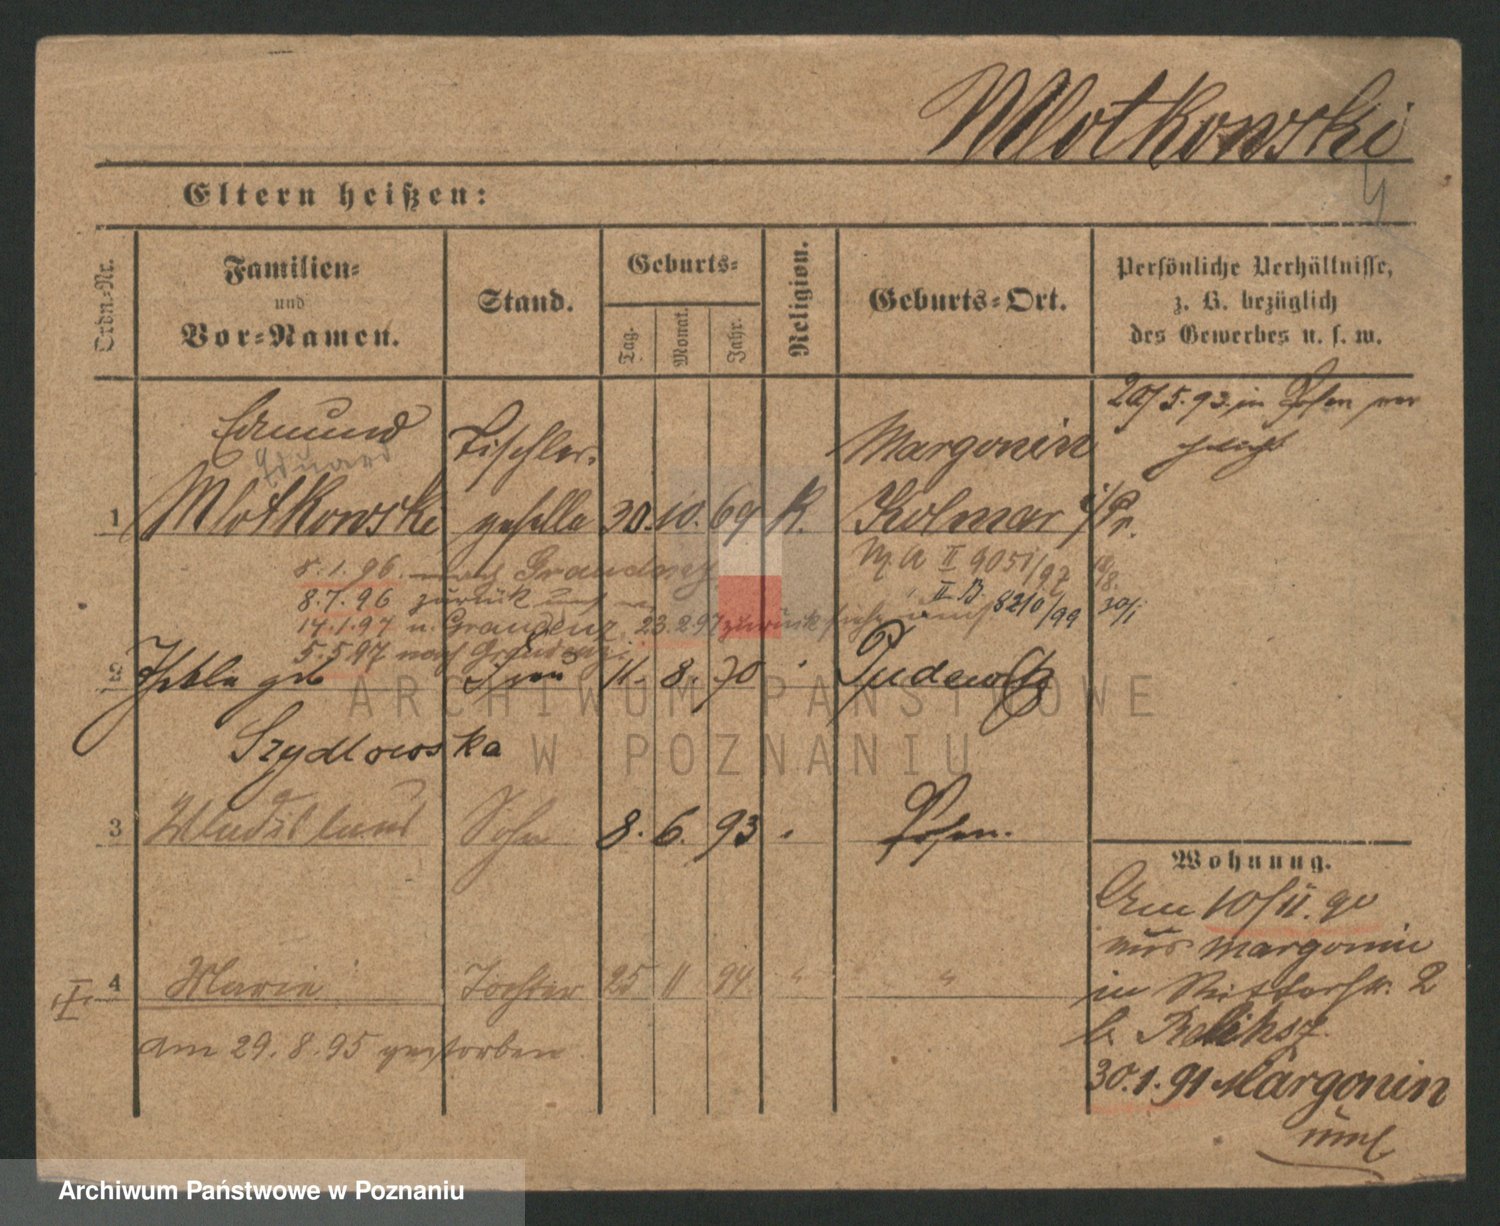 Mlotkowski
Eltern heißen:
Ordn.-Nr.
Familien-
und
Vor-Namen.
Stand.
Geburts-
Tag.
Monat.
Jahr.
Religion.
Geburts-Ort.
Persönliche Verhältnisse,
z. B. bezüglich
des Gewerbes u. s. w.
20/5.93. in Posen ver
Edmund
Eduard
Tischler-
Margonin
1 Mlotkowski geselle 30. 10. 69 K. Kolmar i/Pr.
8.1.96. nach Graudenz
M. A II 9051/97
8.7.96 zurück
II B. 8210/99
14.1.97 n. Graudenz, 23.2.97 zurück
5.5.97 nach Graudenz
2 geb Frau 11. 8. 70 Pudewitz
Szydlowska
3 Wladislaus Sohn 8. 6. 93 Posen.
4 Marie Tochter 25 11 94 " "
am 29.8.95 gestorben
Wohnung.
Am 10/11. 90
aus Margonin
in Ritterstr. 2
b.
30.1.91 Margonin
ARCHIWUM PAŃSTWOWE
W POZNANIU
Archiwum Państwowe w Poznaniu